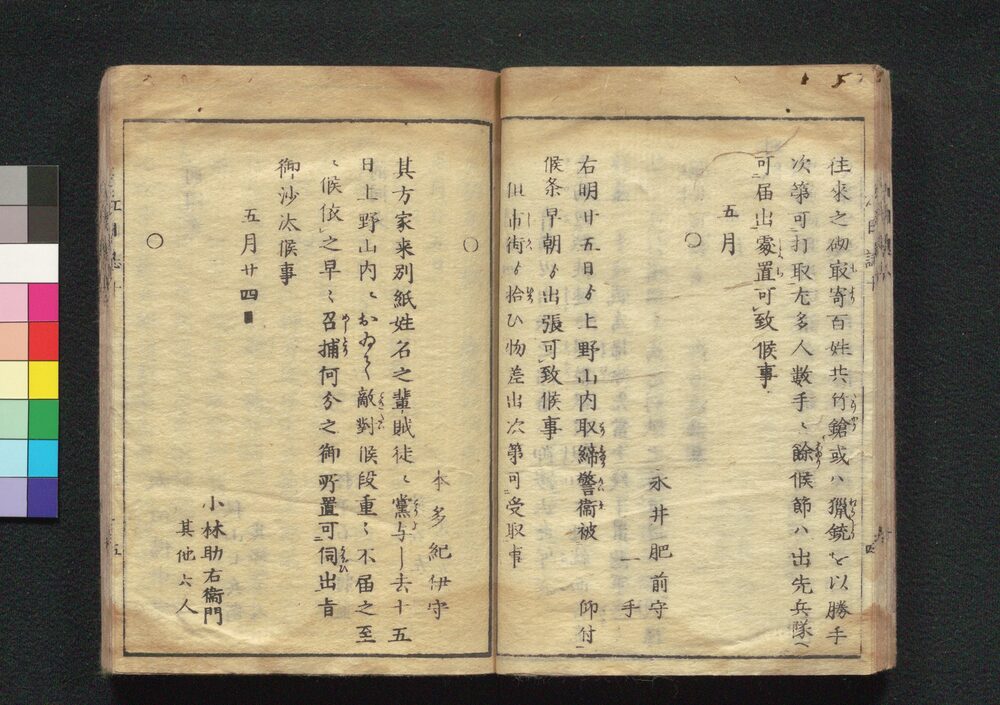 往来之砌㝡寄百姓共竹鎗或ハ猟銃を以勝手
次第可打取尤多人數手ニ餘候節ハ出先兵隊へ
可届出處置可致候事
五月
〇
永井肥前守
一手
右明廿五日ゟ上野山内取締警衞被 仰付
候条早朝ゟ出張可致候事
但市街ゟ拾ひ物差出次第可受取事
〇
本多紀伊守
其方家来別紙姓名之輩賊徒ニ黨与し去十五
日上野山内ニおゐて敵對候段重々不届之至
ニ候依之早々召捕何分之御所置可伺出旨
御沙汰候事
五月廿四
小林助右衞門
其他六人
〇